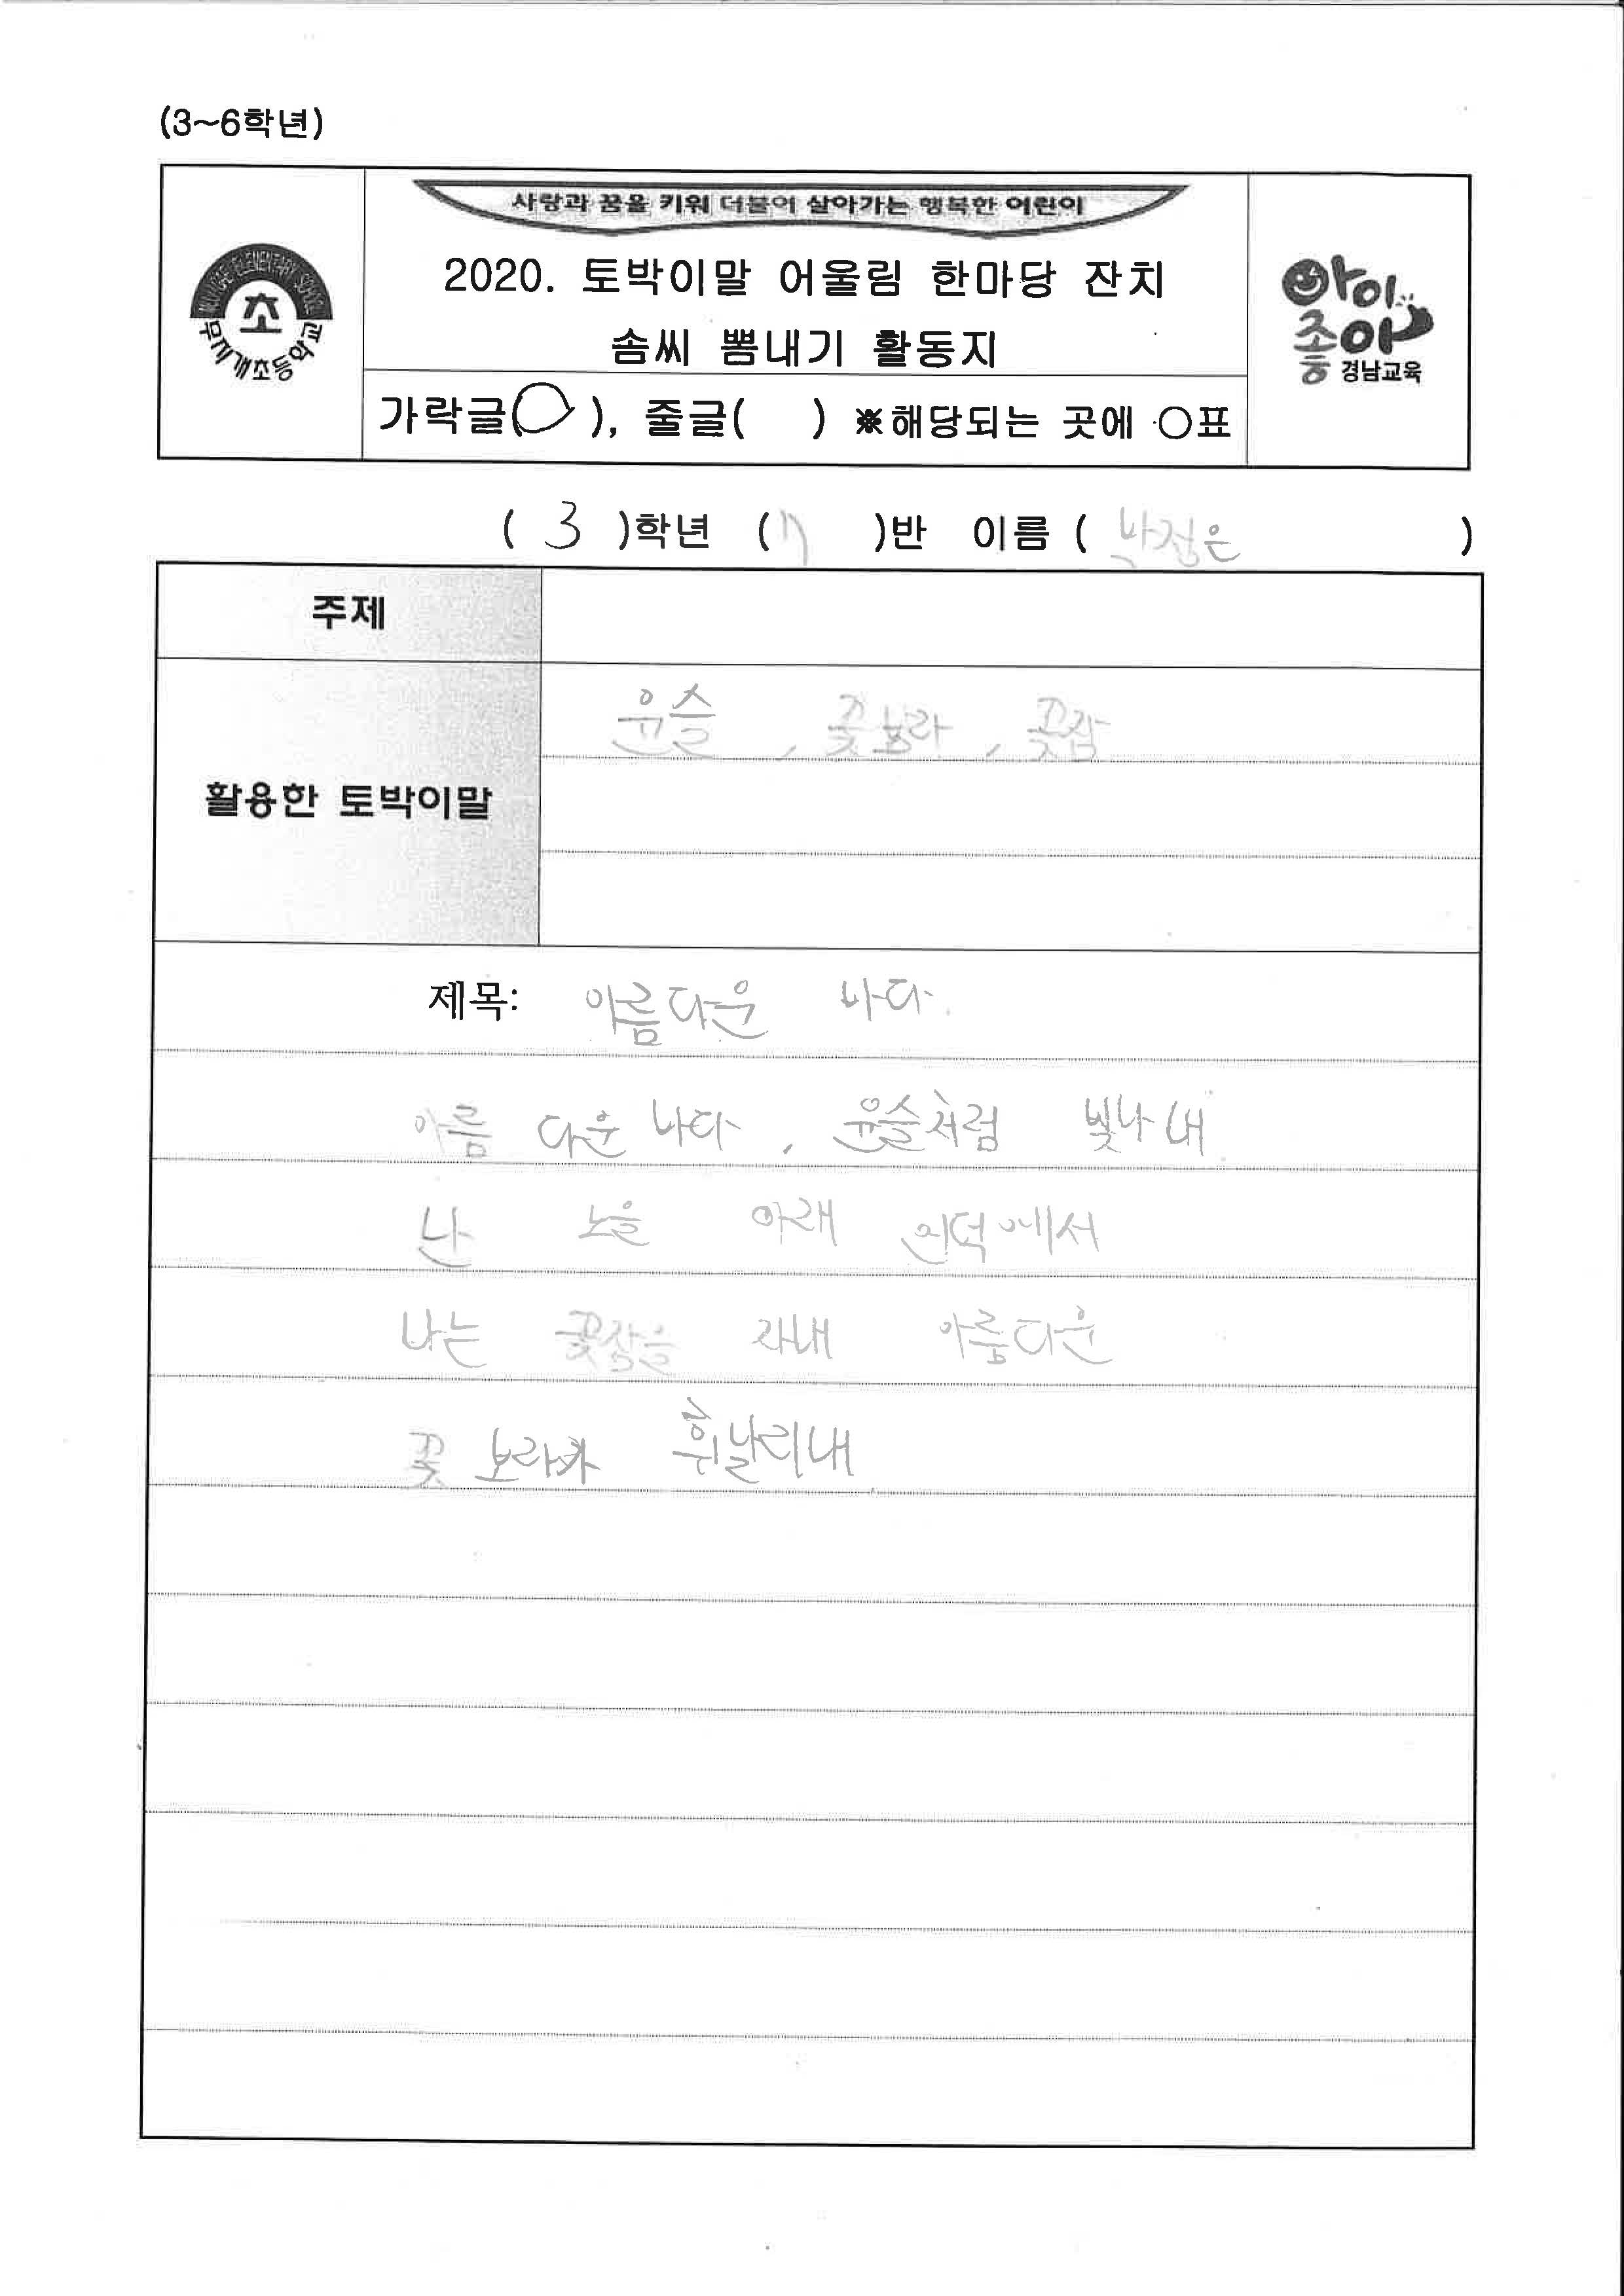 (3~6학년)
사랑과 꿈을 키워 더불어 살아가는 행복한 어린이
2020. 토박이말 어울림 한마당 잔치
솜씨 뽐내기 활동지
MUJIGAE ELEMENTARY SCHOOL
초
무지개초등학교
아이좋아
경남교육
가락글(○), 줄글( ) ※해당되는 곳에 ○표
( 3 )학년 ( 7 )반 이름 ( 박정은 )
주제
활용한 토박이말
윤슬 , 꽃보라 , 꽃잠
제목: 아름다운 바다.
아름 다운 바다 , 윤슬처럼 빛나 내
난 노을 아래 언덕에서
나는 꽃잠을 자내 아름다운
꽃 보라가 휘날리내